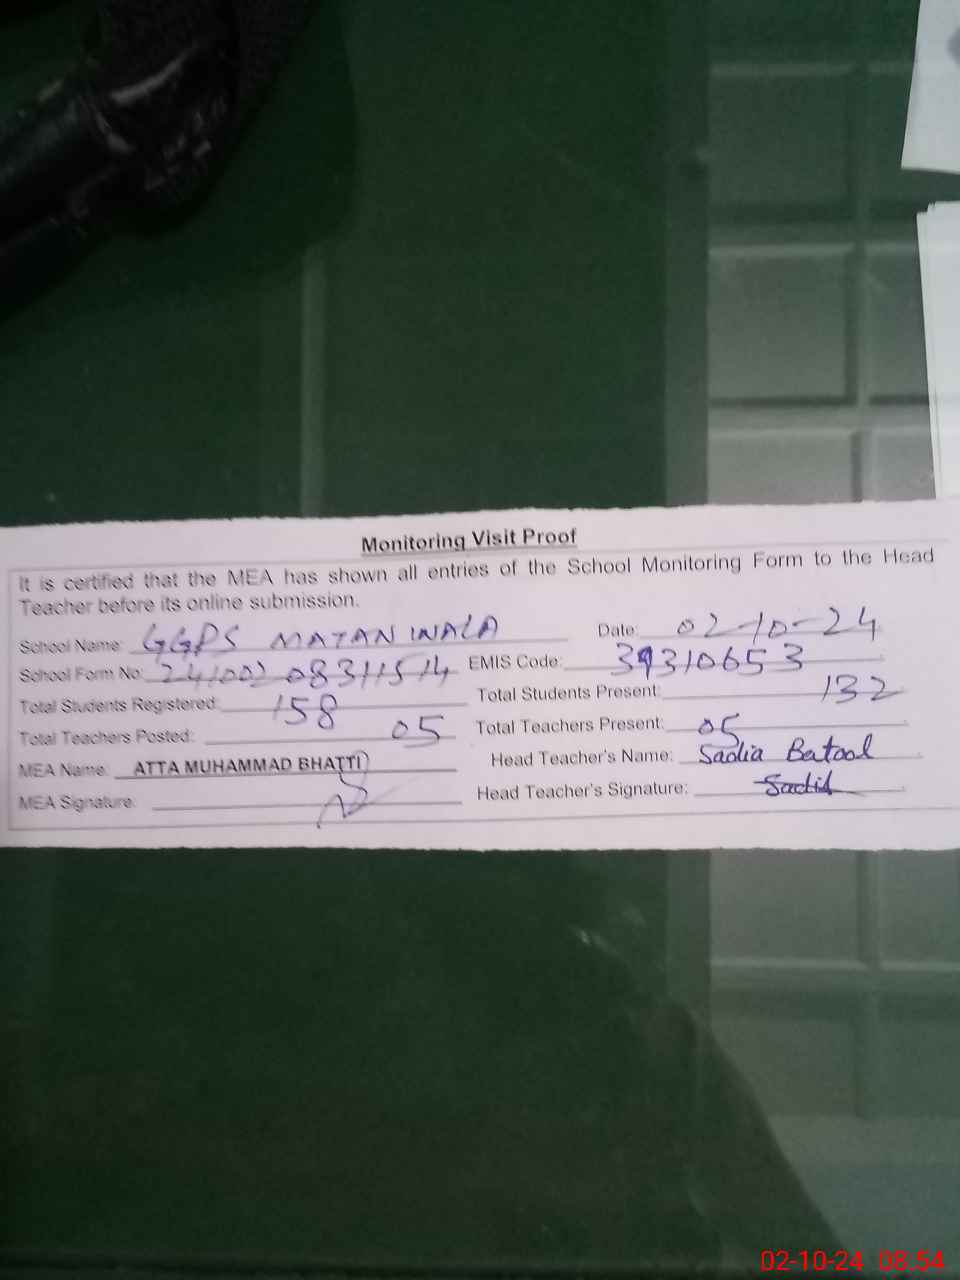 Monitoring Visit Proof
It is certified that the MEA has shown all entries of the School Monitoring Form to the Head
Teacher before its online submission.
School Name: GGPS MATANWALA Date: 02-10-24
School Form No: 241002 08311514 EMIS Code: 39310653
Total Students Registered: 158 Total Students Present: 132
Total Teachers Posted: 05 Total Teachers Present: 05
MEA Name: ATTA MUHAMMAD BHATTI Head Teacher's Name: Sadia Batool
MEA Signature: Head Teacher's Signature: Sadia
02-10-24 08:54